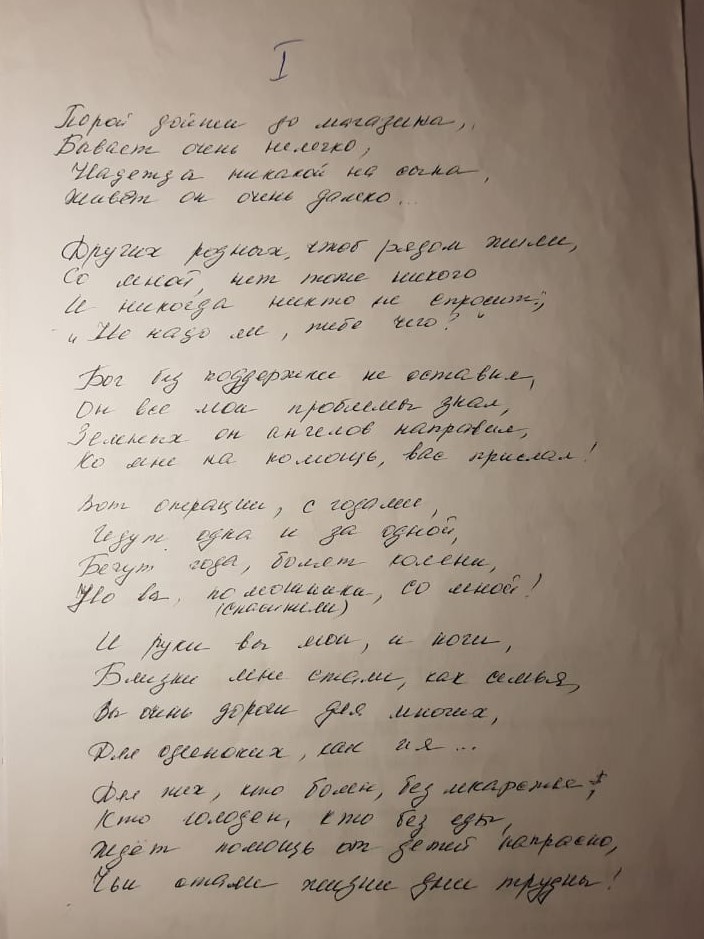 I
Порой дойти до магазина,
Бывает очень нелегко,
Надежда никакой на сына,
Живёт он очень далеко...
Других родных, чтоб рядом жили,
Со мной, нет тоже никого
И никогда никто не спросит,
"Не надо ли, тебе чего?"
Бог без поддержки не оставил,
Он все мои проблемы знал,
Земных он ангелов направил,
Ко мне на помощь, вас прислал!
Вот операции, с годами,
Идут одна и за одной,
Бегут года, болят колени,
Но вы, помощники, со мной!
(спасители)
И руки вы мои, и ноги,
Близкие мне стали, как семья,
Вы очень дороги для многих,
Для одиноких, как и я...
Для тех, кто болен, без лекарства,
Кто голоден, кто без еды,
Ждёт помощь от детей напрасно,
Чьи стали жизни дни трудны!